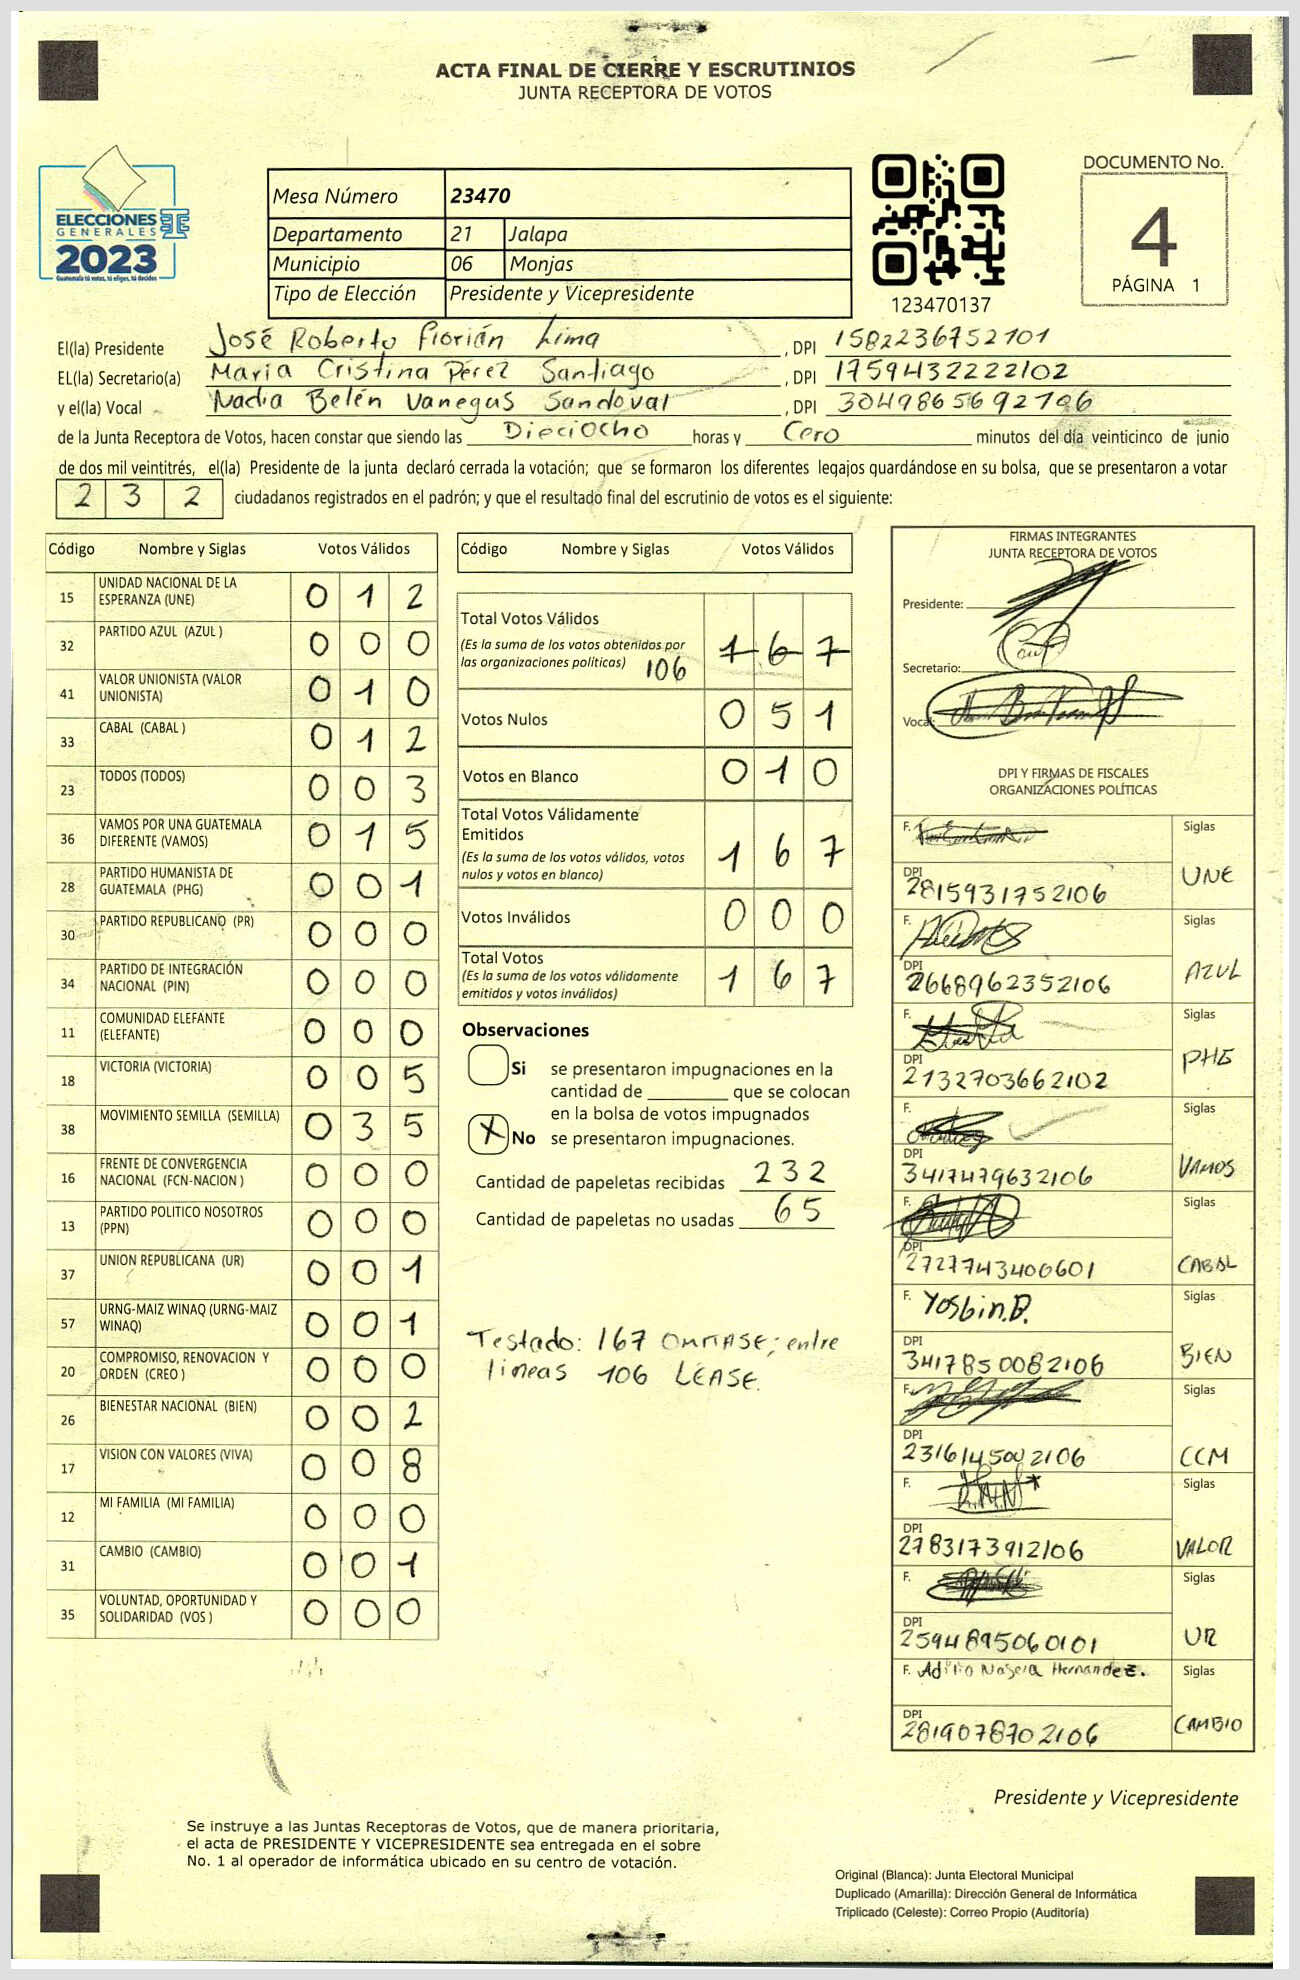 ACTA FINAL DE CIERRE Y ESCRUTINIOS
JUNTA RECEPTORA DE VOTOS
ELECCIONES
GENERALES
2023
Guatemala tú votas, tú eliges, tú decides
Mesa Número 23470
Departamento 21 Jalapa
Municipio 06 Monjas
Tipo de Elección Presidente y Vicepresidente
123470137
DOCUMENTO No.
4
PÁGINA 1
El(la) Presidente José Roberto Florián Lima, DPI 1582236752101
EL(la) Secretario(a) María Cristina Pérez Santiago, DPI 1759432222102
y el(la) Vocal Nadia Belén Vanegas Sandoval, DPI 3049865692106
de la Junta Receptora de Votos, hacen constar que siendo las Dieciocho horas y Cero minutos del día veinticinco de junio
de dos mil veintitrés, el(la) Presidente de la junta declaró cerrada la votación; que se formaron los diferentes legajos quardándose en su bolsa, que se presentaron a votar
2 3 2 ciudadanos registrados en el padrón; y que el resultado final del escrutinio de votos es el siguiente:
Código Nombre y Siglas Votos Válidos
15 UNIDAD NACIONAL DE LA ESPERANZA (UNE) 0 1 2
32 PARTIDO AZUL (AZUL ) 0 0 0
41 VALOR UNIONISTA (VALOR UNIONISTA) 0 1 0
33 CABAL (CABAL ) 0 1 2
23 TODOS (TODOS) 0 0 3
36 VAMOS POR UNA GUATEMALA DIFERENTE (VAMOS) 0 1 5
28 PARTIDO HUMANISTA DE GUATEMALA (PHG) 0 0 1
30 PARTIDO REPUBLICANO (PR) 0 0 0
34 PARTIDO DE INTEGRACIÓN NACIONAL (PIN) 0 0 0
11 COMUNIDAD ELEFANTE (ELEFANTE) 0 0 0
18 VICTORIA (VICTORIA) 0 0 5
38 MOVIMIENTO SEMILLA (SEMILLA) 0 3 5
16 FRENTE DE CONVERGENCIA NACIONAL (FCN-NACION ) 0 0 0
13 PARTIDO POLITICO NOSOTROS (PPN) 0 0 0
37 UNION REPUBLICANA (UR) 0 0 1
57 URNG-MAIZ WINAQ (URNG-MAIZ WINAQ) 0 0 1
20 COMPROMISO, RENOVACION Y ORDEN (CREO ) 0 0 0
26 BIENESTAR NACIONAL (BIEN) 0 0 2
17 VISION CON VALORES (VIVA) 0 0 8
12 MI FAMILIA (MI FAMILIA) 0 0 0
31 CAMBIO (CAMBIO) 0 0 1
35 VOLUNTAD, OPORTUNIDAD Y SOLIDARIDAD (VOS ) 0 0 0
Código Nombre y Siglas Votos Válidos
Total Votos Válidos
(Es la suma de los votos obtenidos por
las organizaciones políticas) 106 1 6 7
Votos Nulos 0 5 1
Votos en Blanco 0 1 0
Total Votos Válidamente
Emitidos
(Es la suma de los votos válidos, votos
nulos y votos en blanco) 1 6 7
Votos Inválidos 0 0 0
Total Votos
(Es la suma de los votos válidamente
emitidos y votos inválidos) 1 6 7
Observaciones
Si se presentaron impugnaciones en la
cantidad de ________ que se colocan
en la bolsa de votos impugnados
X No se presentaron impugnaciones.
Cantidad de papeletas recibidas 232
Cantidad de papeletas no usadas 65
Testado: 167 OMITASE; entre
lineas 106 LÉASE.
FIRMAS INTEGRANTES
JUNTA RECEPTORA DE VOTOS
Presidente:
Secretario:
Vocal:
DPI Y FIRMAS DE FISCALES
ORGANIZACIONES POLÍTICAS
F. Siglas
DPI 2815931752106 UNE
F. Siglas
DPI 2668962352106 AZUL
F. Siglas
DPI 2132703662102 PHG
F. Siglas
DPI 3417479632106 VAMOS
F. Siglas
DPI 2727743400601 CABAL
F. Yosbin.B. Siglas
DPI 3417850082106 BIEN
F. Siglas
DPI 2316145002106 CCM
F. Siglas
DPI 2783173912106 VALOR
F. Siglas
DPI 2594895060101 UR
F. Najera Hernandez. Siglas
DPI 2819078702106 CAMBIO
Presidente y Vicepresidente
Se instruye a las Juntas Receptoras de Votos, que de manera prioritaria,
el acta de PRESIDENTE Y VICEPRESIDENTE sea entregada en el sobre
No. 1 al operador de informática ubicado en su centro de votación.
Original (Blanca): Junta Electoral Municipal
Duplicado (Amarilla): Dirección General de Informática
Triplicado (Celeste): Correo Propio (Auditoría)